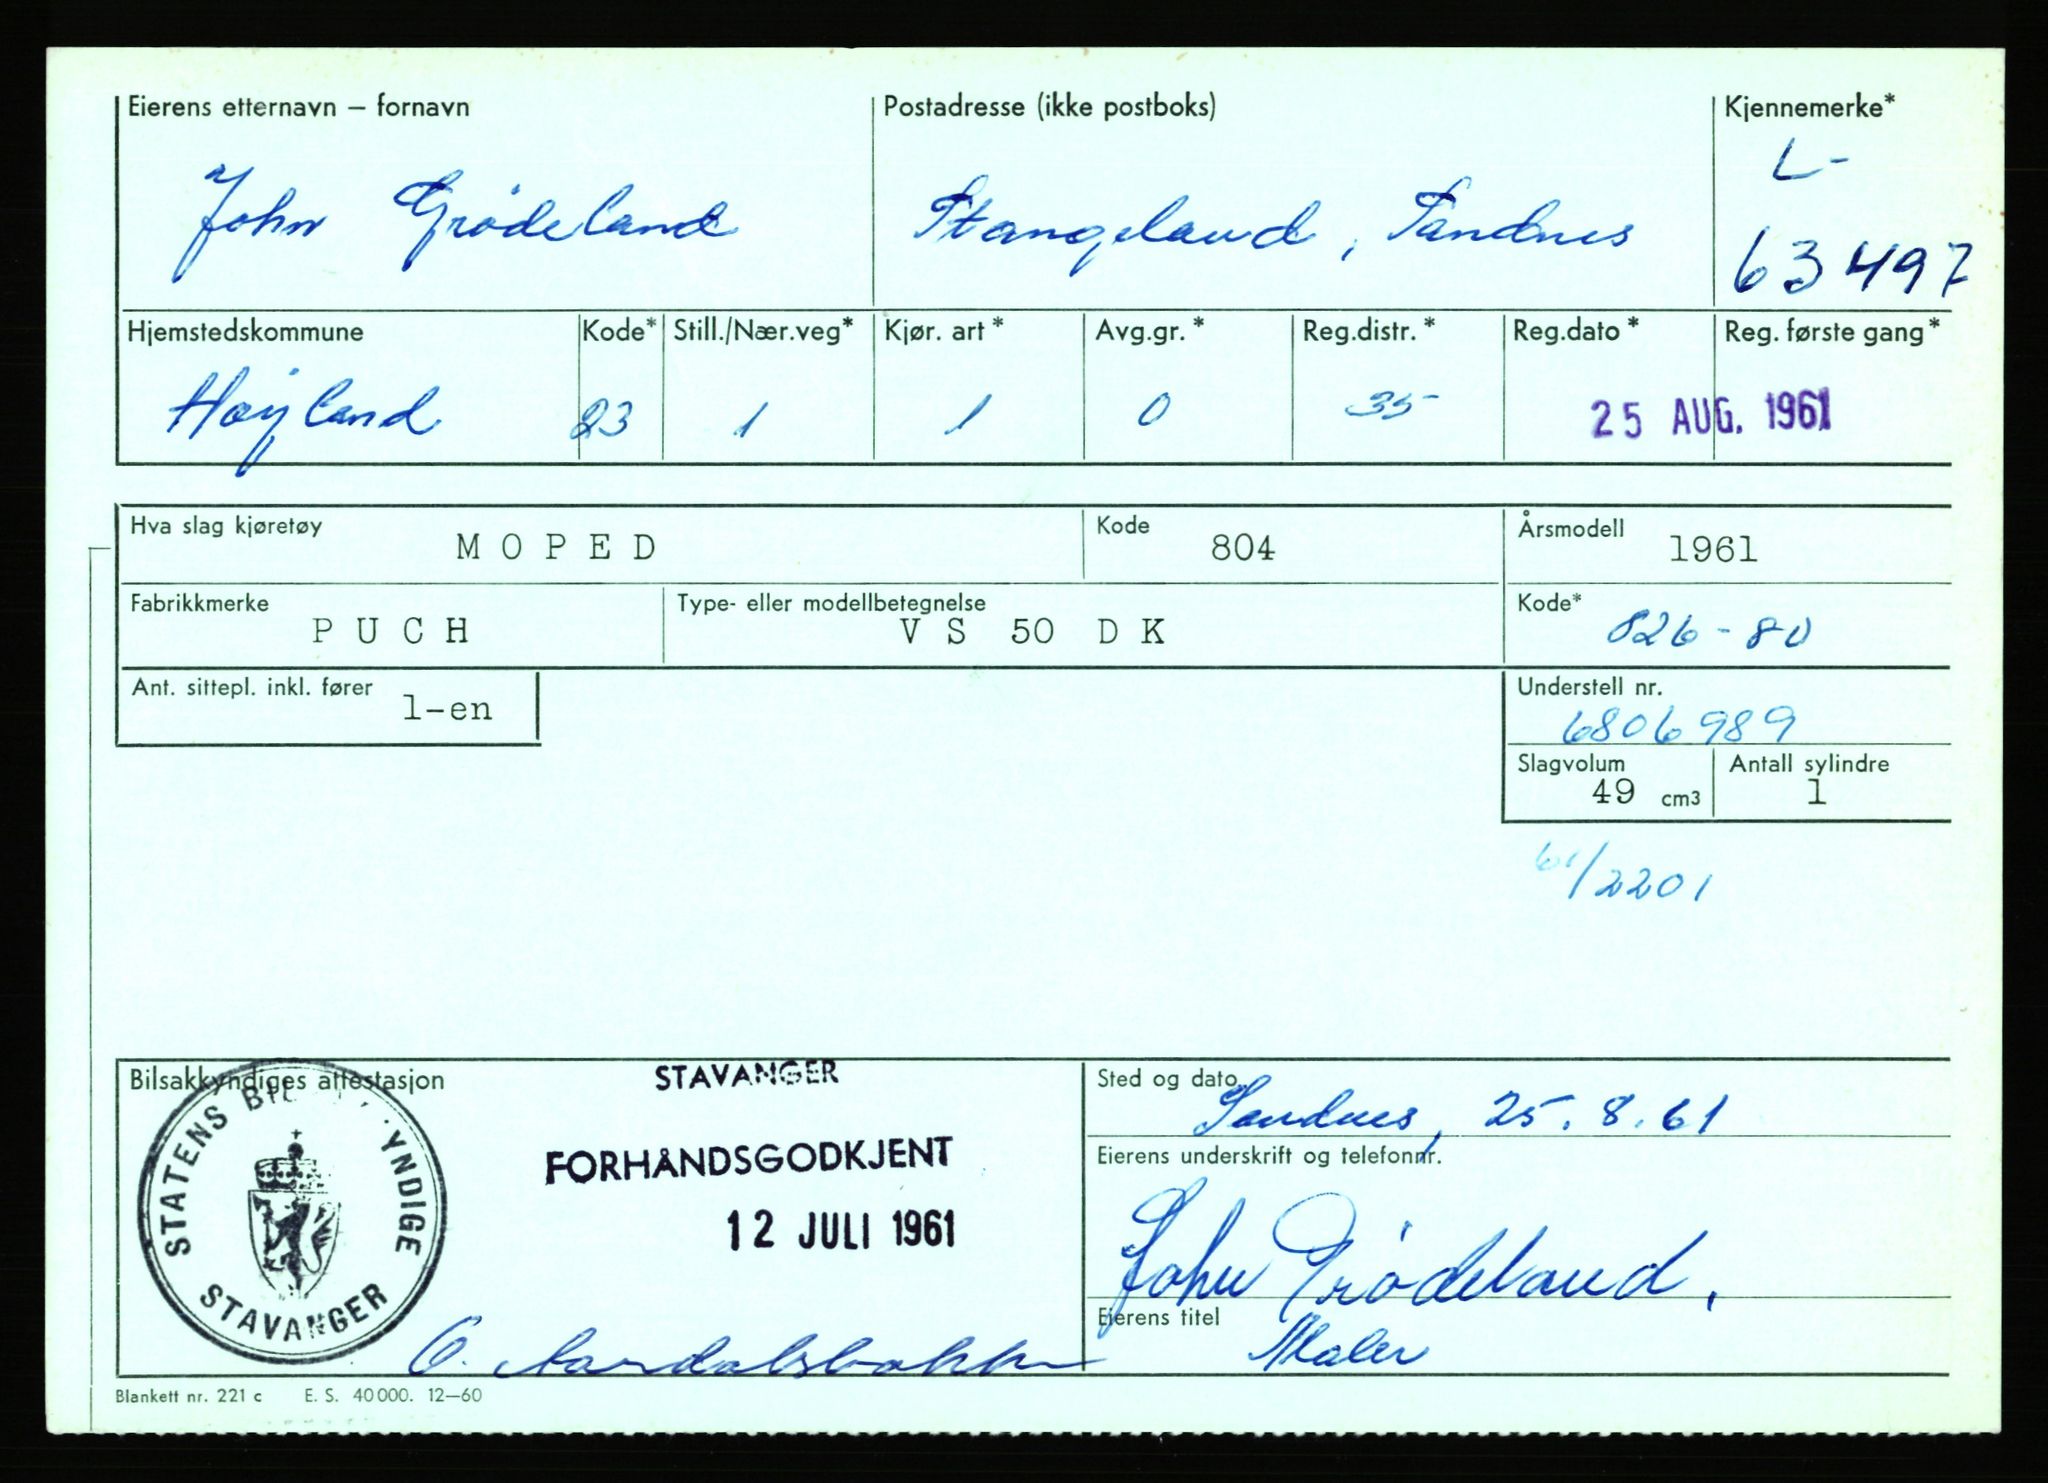 Eierens etternavn – fornavn Postadresse (ikke postboks) Kjennemerke*
L-
John Grødeland Stangeland, Sandnes
63497
Hjemstedskommune Kode* Still./Nær.veg* Kjør. art* Avg.gr.* Reg.distr.* Reg.dato* Reg. første gang*
Høyland 23 1 1 0 35 25 AUG. 1961
Hva slag kjøretøy MOPED Kode 804 Årsmodell 1961
Fabrikkmerke PUCH Type- eller modellbetegnelse VS 50 DK Kode* 826-80
Ant. sittepl. inkl. fører 1-en Understell nr.
6806989
Slagvolum 49 cm3 Antall sylindre 1
61/2201
Bilsakkyndiges attestasjon STAVANGER Sted og dato
Sandnes, 25.8.61
STATENS BIL YNDIGE STAVANGER
FORHÅNDSGODKJENT
Eierens underskrift og telefonnr.
12 JULI 1961
John Grødeland.
Eierens titel
Maler
Blankett nr. 221 c E. S. 40000. 12—60